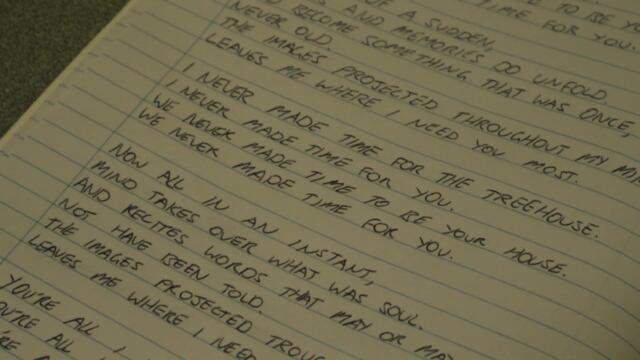 E TO BE YO
TIME FOR YOU.
OF A SUDDEN,
S AND MEMORIES DO UNFOLD.
D BECOME SOMETHING THAT WAS ONCE,
NEVER OLD.
THE IMAGES PROJECTED THROUGHOUT MY MI
LEAVES ME WHERE I NEED YOU MOST.
I NEVER MADE TIME FOR THE TREEHOUSE.
I NEVER MADE TIME FOR YOU.
WE NEVER MADE TIME TO BE YOUR HOUSE.
WE NEVER MADE TIME FOR YOU.
NOW ALL IN AN INSTANT,
MIND TAKES OVER WHAT WAS SOUL.
AND RECITES WORDS THAT MAY OR MA
NOT HAVE BEEN TOLD.
THE IMAGES PROJECTED TROUG
LEAVES ME WHERE I NEED
YOU'RE ALL I
OU'RE ALL